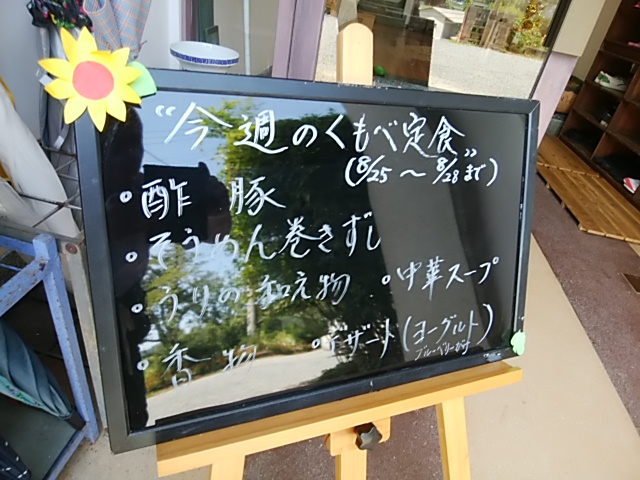 “今週のくもべ定食”
(8/25～8/28まで)
・酢豚
・そうめん巻きずし
・うりの和え物 ・中華スープ
・香物 ・デザート(ヨーグルト)
ブルーベリーがけ